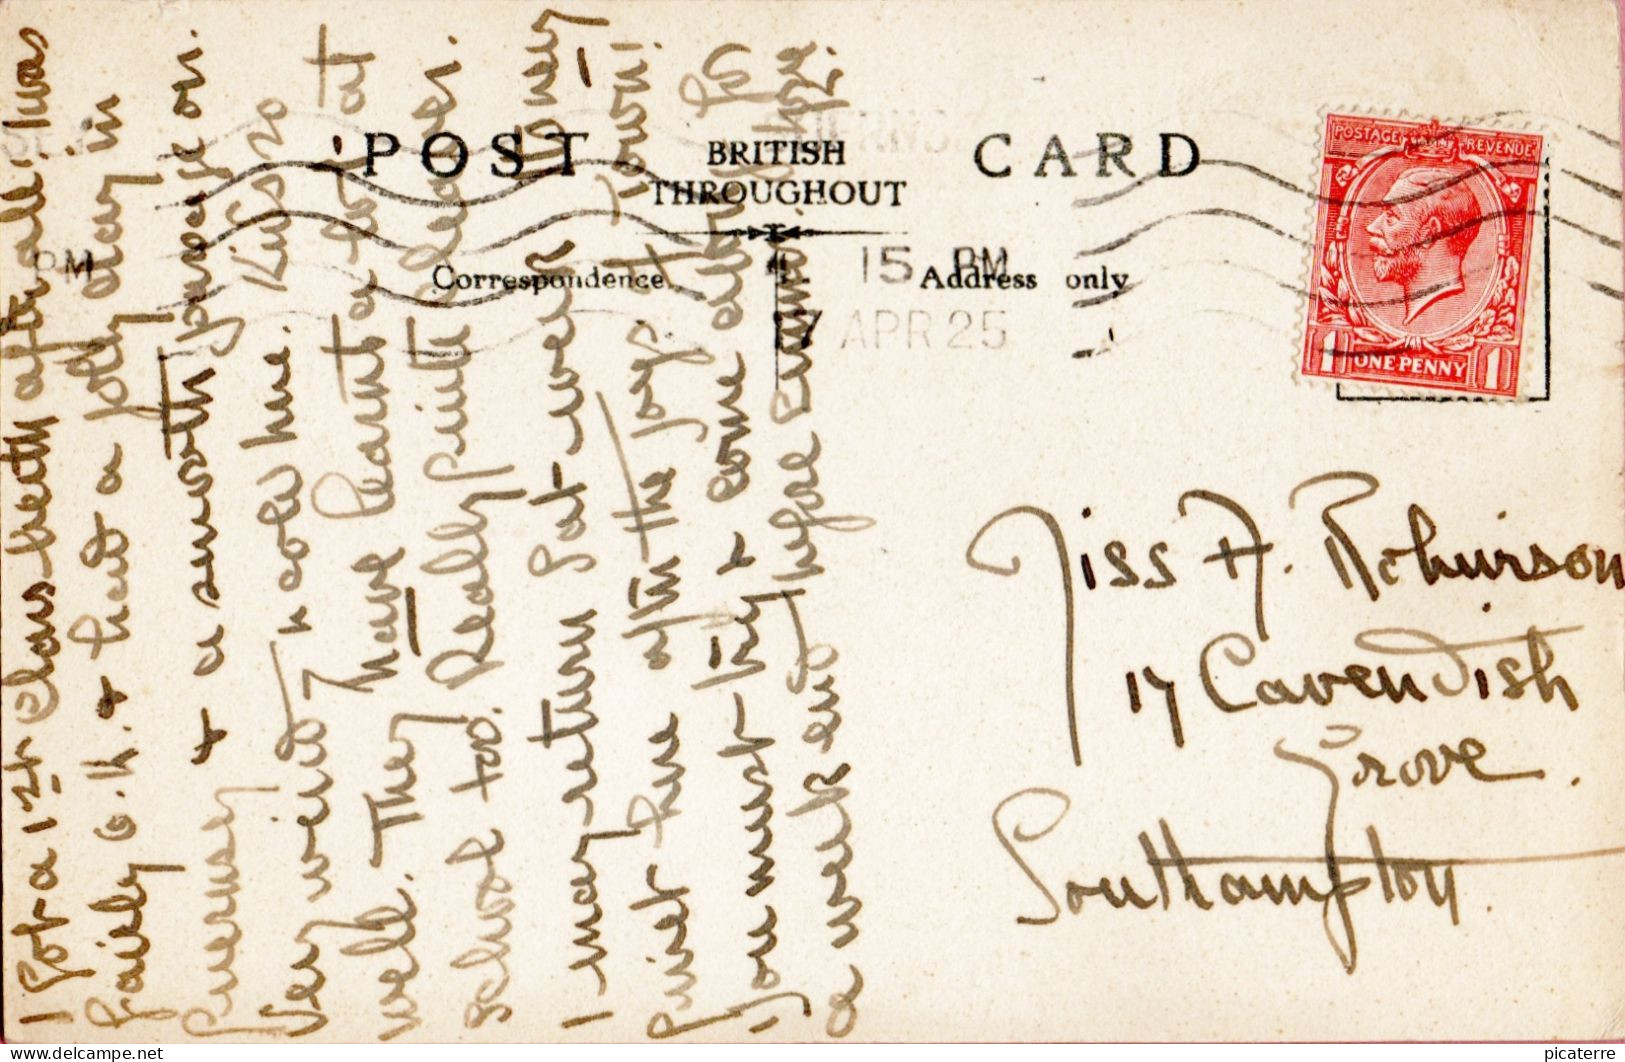 POST CARD
BRITISH
THROUGHOUT
Correspondence
Address only
PM
4 15 PM
7 APR 25
POSTAGE REVENUE
1 ONE PENNY 1
I got a 1st class berth after all. I was
fairly O.K. & had a jolly day in
Guernsey & a smooth passage on.
Very wind & cold here. Kids so
well. They have learnt a lot at
school too. Really quite clever.
I may return Sat week
quiet here after the joys of Town!
You must try & come over for
a week end before
Miss A. Robinson
17 Cavendish
Grove.
Southampton
delcampe.net
picaterre